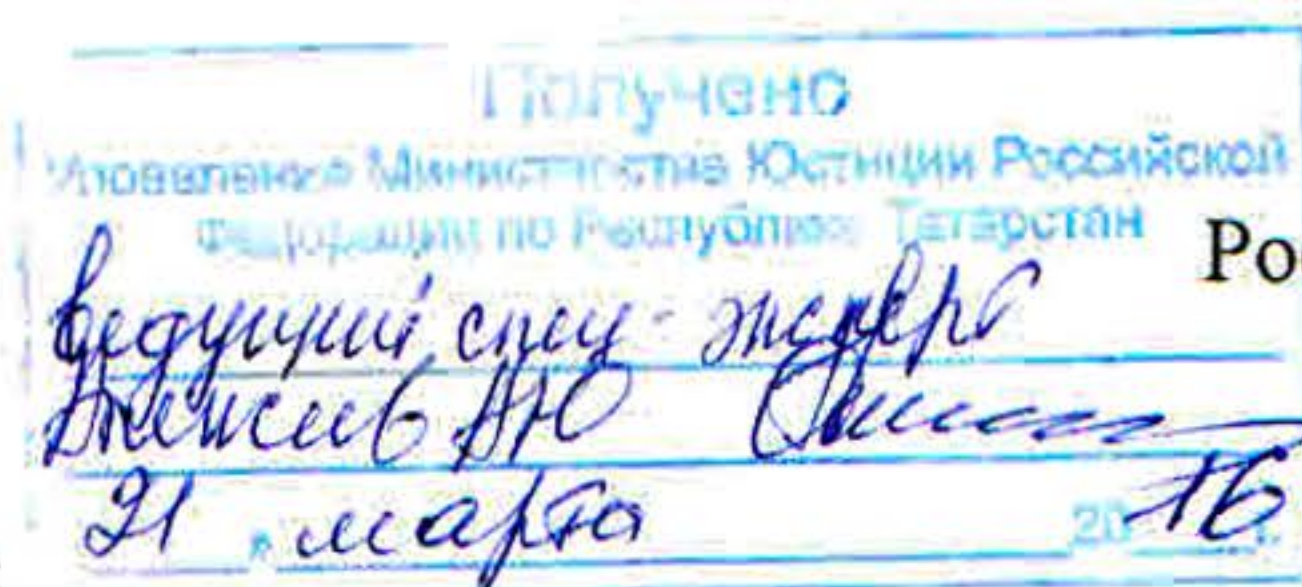 Получено
Управление Министерства Юстиции Российской
Федерации по Республике Татарстан
Ро
ведущий спец-эксперт
АЮ
21 " марта 20 16 г.